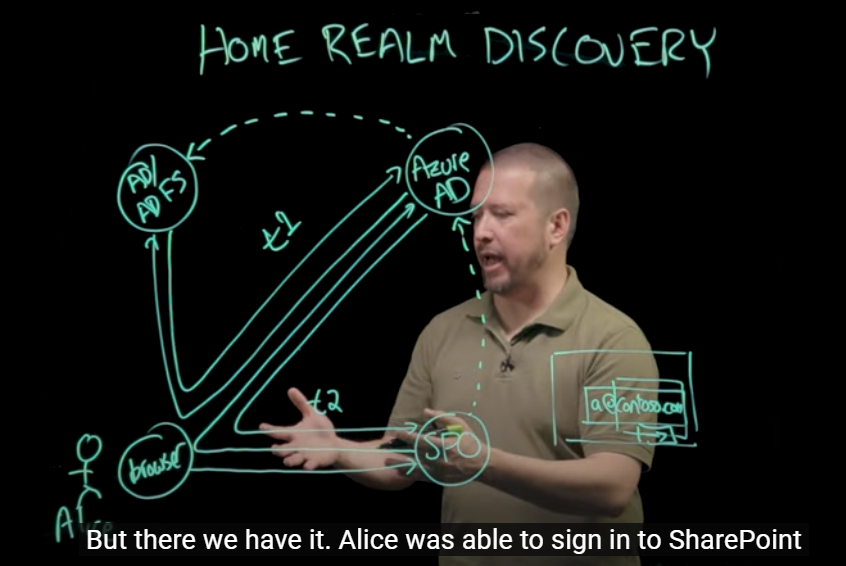 HOME REALM DISCOVERY
AD/
AD FS
Azure
AD
t1
t2
a@contoso.com
browser
SPO
But there we have it. Alice was able to sign in to SharePoint